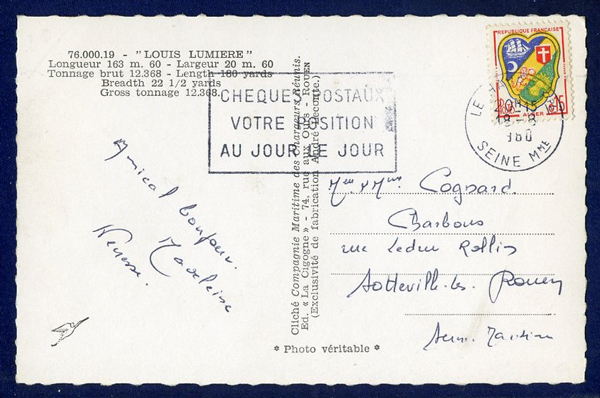 76.000.19 - "LOUIS LUMIERE"
Longueur 163 m. 60 - Largeur 20 m. 60
Tonnage brut 12.368 - Length 180 yards
Breadth 22 1/2 yards
Gross tonnage 12.368.
CHEQUES POSTAUX
VOTRE POSITION
AU JOUR LE JOUR
REPUBLIQUE FRANÇAISE
ALGER
SEINE MME
Amical bonjour.
Madeleine
Cliché Compagnie Maritime des Chargeurs Réunis.
Ed. « La Cigogne » - 74, rue aux Ours - ROUEN
(Exclusivité de fabrication André Leconte.)
* Photo véritable *
Cognard
rue Ledru Rollin
Sotteville-les-Rouen